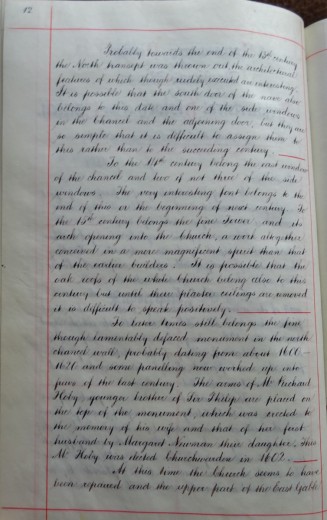 12
Probably towards the end of the 13th century
the North transept was thrown out the architectural
features of which though rudely executed are interesting.
It is possible that the south door of the nave also
belongs to this date and one of the side windows
in the Chancel and the adjoining door, but they are
so simple that it is difficult to assign them to
this rather than to the succeeding century.
To the 14th century belong the east window
of the chancel and two if not three of the side
windows. The very interesting font belongs to the
end of this or the beginning of next century. To
the 15th century belongs the fine Tower, and its
arch opening into the Church, a work altogether
conceived in a more magnificent spirit than that
of the earlier builders. It is possible that the
oak roofs of the whole Church belong also to this
century but until their plaster ceilings are removed
it is difficult to speak positively.
To later times still belongs the fine
though lamentably defaced monument in the north
chancel wall, probably dating from about 1600-
1620 and some panelling now worked up into
pews of the last century. The arms of Mr Richard
Hoby younger brother of Sir Philip are placed on
the top of the monument, which was erected to
the memory of his wife and that of her first
husband by Margaret Newman their daughter. This
Mr Hoby was elected Churchwarden in 1602.
At this time the Church seems to have
been repaired and the upper part of the East Gable